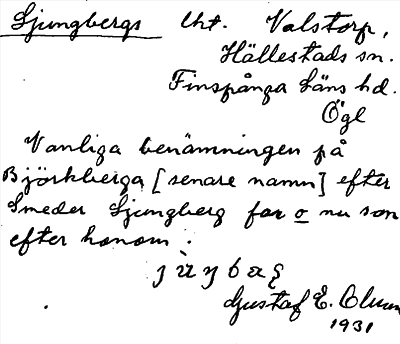 Ljungbergs lht. Valstorp,
Hällestads sn.
Finspånga Läns hd.
Ögl
Vanliga benämningen på
Björkberga [senare namn] efter
Smeder Ljungberg far o nu son
efter honom.
Gustaf E.
1931